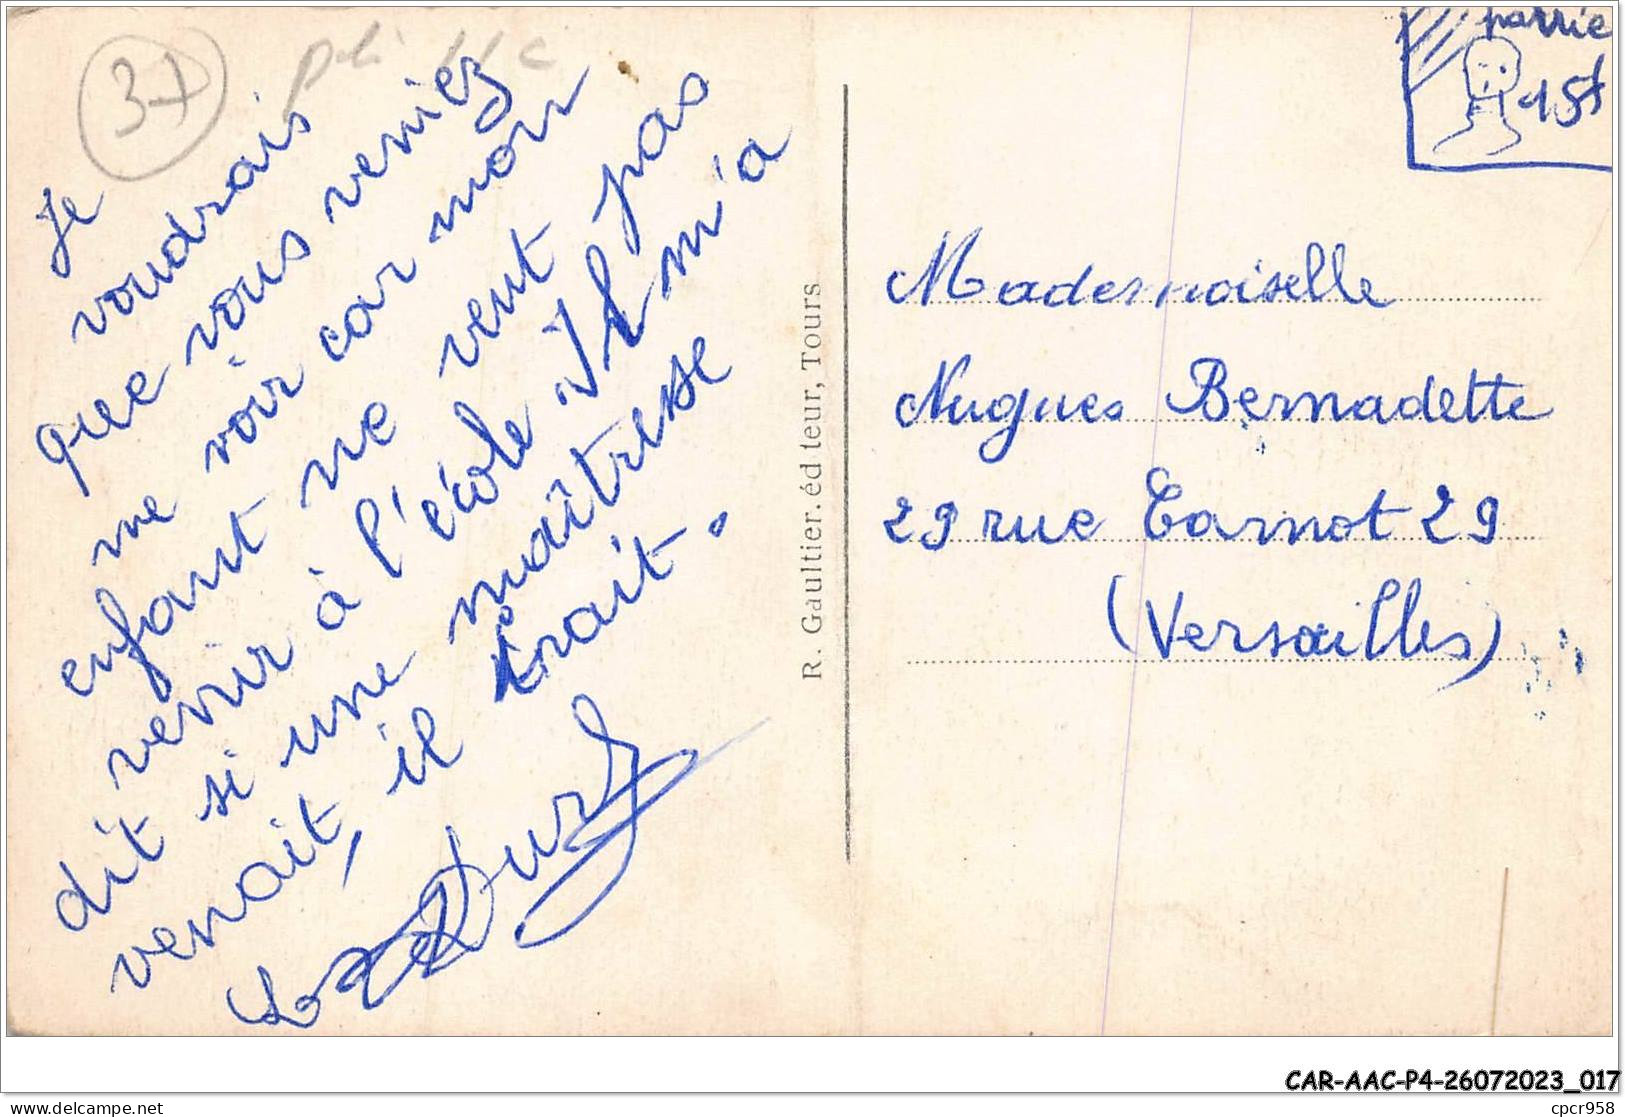 37
parrie
15f
Je
voudrais
que vous veniez
me voir car mon
enfant ne veut pas
venir à l'école. Il m'a
dit si une maîtresse
venait, il irait.
R. Gaultier. éd teur, Tours
Mademoiselle
Nugues Bernadette
29 rue Carnot 29
(Versailles)
CAR-AAC-P4-26072023_017
https://www.delcampe.net
cpcr958